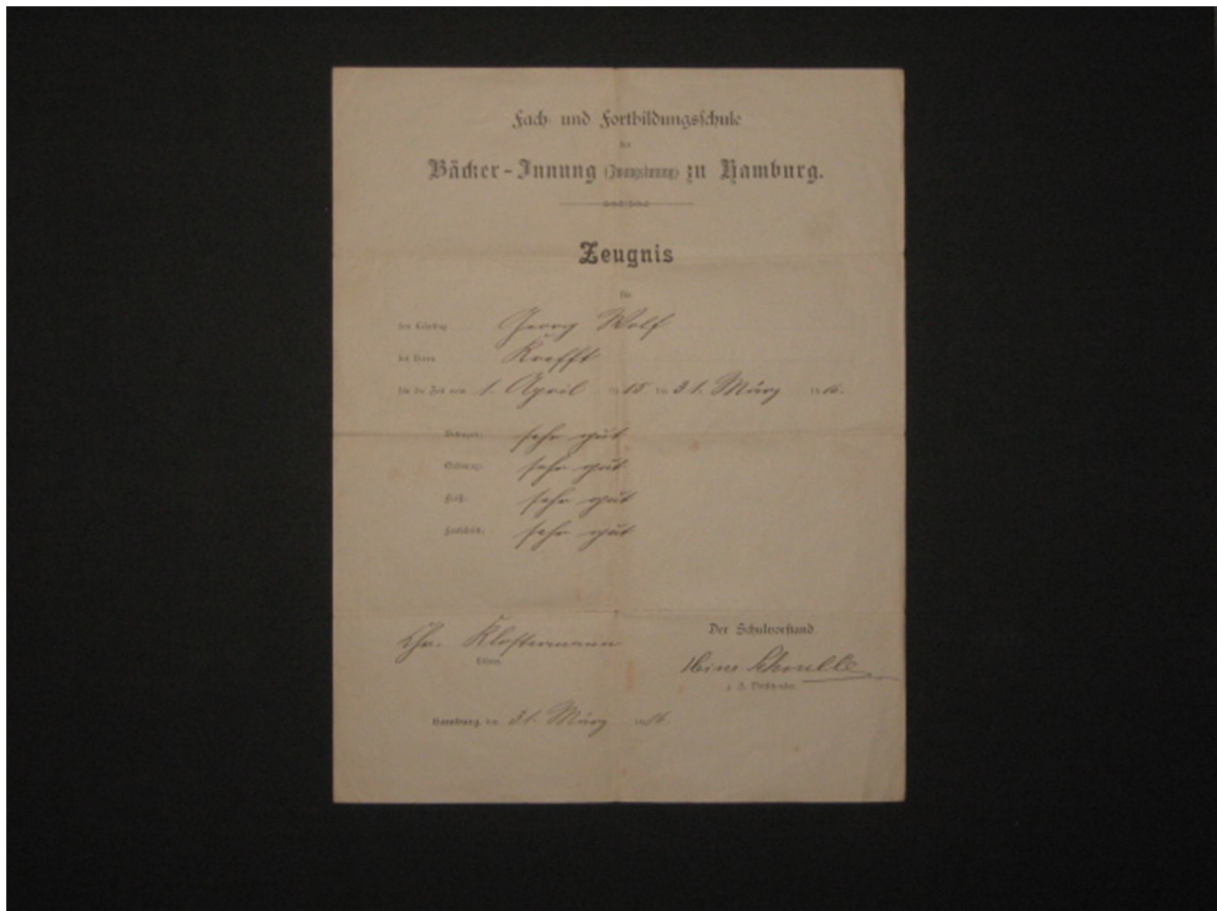 Fach- und Fortbildungsschule
der
Bäcker-Innung (Zwangsinnung) zu Hamburg.
Zeugnis
für
den Lehrling Georg Wolf
bei Herrn Krefft
für die Zeit vom 1. April 1915 bis 31. März 1916.
Betragen: sehr gut
Ordnung: sehr gut
Fleiß: sehr gut
Fortschritte: sehr gut
Chr. Klostermann
Lehrer.
Der Schulvorstand
z. Z. Vorsitzender.
Hamburg, den 31. März 1916.